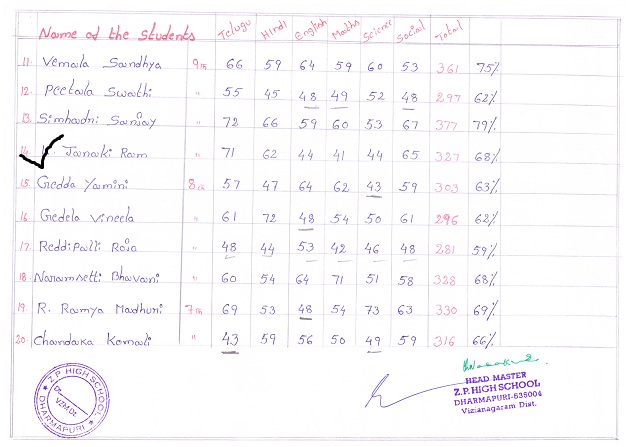 Name of the Students Telugu Hindi English Maths Science Social Total
11. Vemala Sandhya 9th 66 59 64 59 60 53 361 75%
12. Peetala Swathi " 55 45 48 49 52 48 297 62%
13. Simhadri Sanjay " 72 66 59 60 53 67 377 79%
14. Janaki Ram " 71 62 44 41 44 65 327 68%
15. Gedda Yamini 8th 57 47 64 62 43 59 303 63%
16. Gedela Vineela " 61 72 48 54 50 61 296 62%
17. Reddipalli Roja " 48 44 53 42 46 48 281 59%
18. Naramsetti Bhavani " 60 54 64 71 51 58 328 68%
19. R. Ramya Madhuri 7th 69 53 48 54 73 63 330 69%
20. Chandaka Kamali " 43 59 56 50 49 59 316 66%
Z.P. HIGH SCHOOL
Dt.
VZM Dt.
DHARMAPURI
HEAD MASTER
Z.P. HIGH SCHOOL
DHARMAPURI-535004
Vizianagaram Dist.